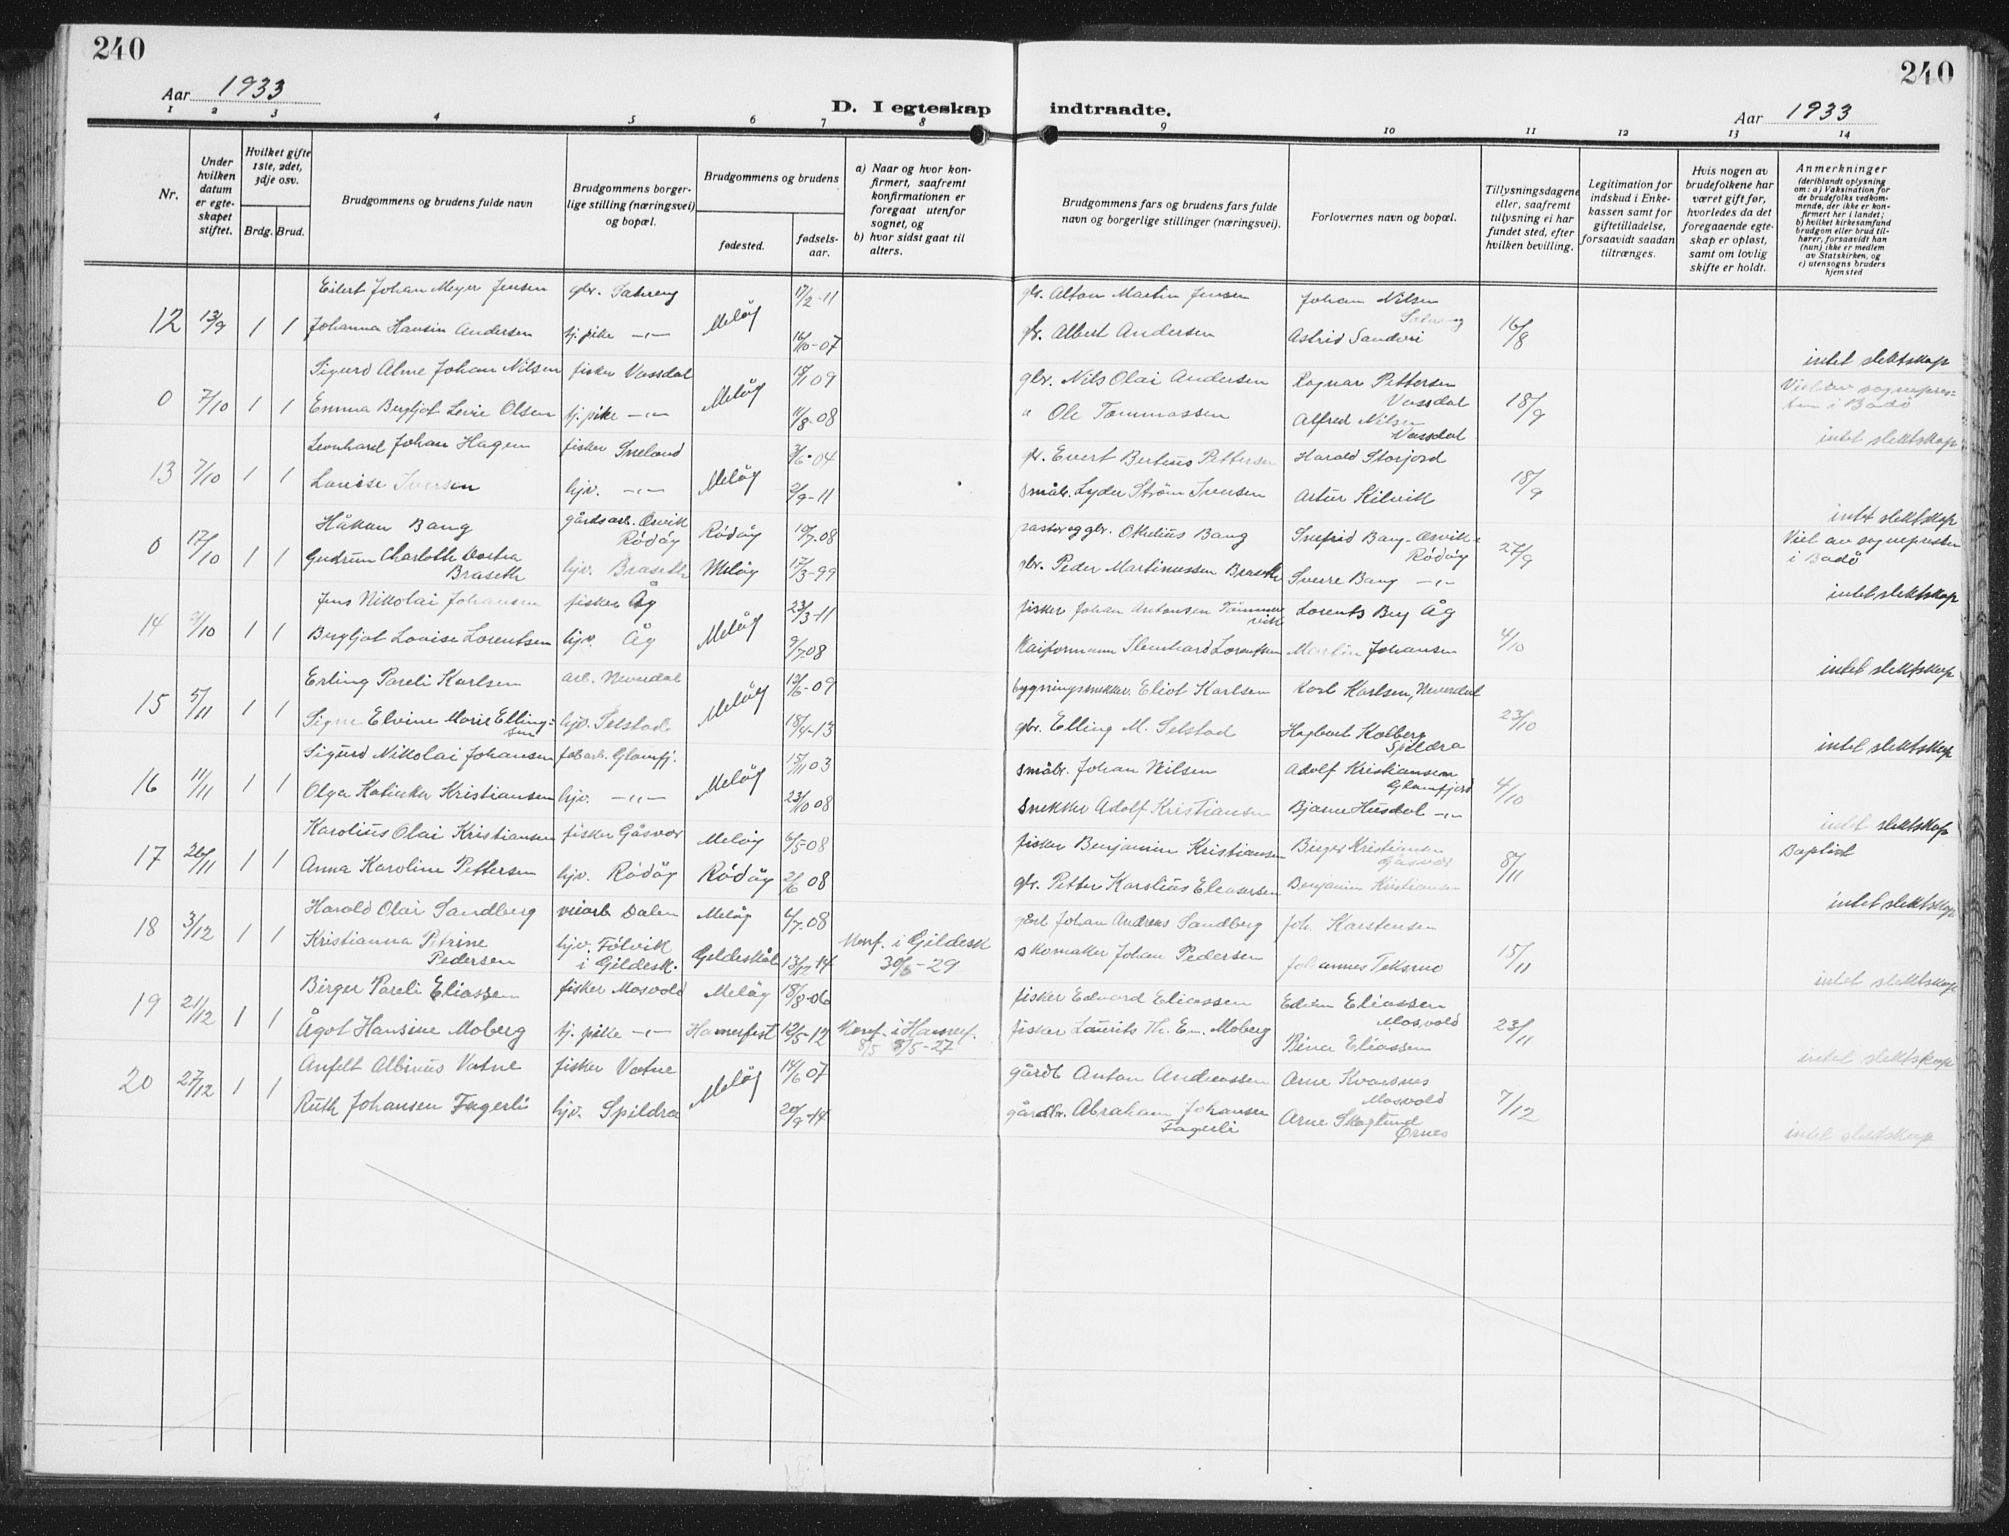 240
240
Aar 1933
D. I egteskap indtraadte.
Aar 1933
1 2 3 4 5 6 7 8 9 10 11 12 13 14
Nr.
Under hvilken datum er egteskapet stiftet.
Hvilket gifte 1ste, 2det, 3dje osv.
Brdg. Brud.
Brudgommens og brudens fulde navn
Brudgommens borgerlige stilling (næringsvei) og bopæl.
Brudgommens og brudens
fødested.
fødselsaar.
a) Naar og hvor konfirmert, saafremt konfirmationen er foregaat utenfor sognet, og
b) hvor sidst gaat til alters.
Brudgommens fars og brudens fars fulde navn og borgerlige stillinger (næringsvei).
Forlovernes navn og bopæl.
Tillysningsdagene eller, saafremt tillysning ei har fundet sted, efter hvilken bevilling.
Legitimation for indskud i Enkekassen samt for giftetilladelse, forsaavidt saadan tiltrænges.
Hvis nogen av brudefolkene har været gift før, hvorledes da det foregaaende egteskap er opløst, samt om lovlig skifte er holdt.
Anmerkninger
(deriblandt oplysning om: a) Vaksination for de brudefolks vedkommende, der ikke er konfirmert her i landet; b) hvilket kirkesamfund brudgom eller brud tilhører, forsaavidt han (hun) ikke er medlem av Statskirken, og c) utensogns bruders hjemsted
Eilert Johan Meyer Jensen gbr. 17/2-11 gbr. Alton Martin Jensen Johan Nilsen
12 13/9 1 1 Johanna Hansin Andersen tj. pike -"- Meløy 16/10-07 gbr. Albert Andersen Astrid Sandvei 16/8
intet slektskap
Sigurd Alme Johan Nilsen fisker Vassdal 09 gbr. Nils Olai Andersen Ragnar Pettersen Vassdal Viet av sognepresten i Bodø
0 7/10 1 1 Emma Bergljot Olsen tj. pike -"- Meløy 11/8-08 " Ole Tommassen Alfred Nilsen Vassdal 18/9
intet slektskap
Leonhard Johan Hagen fisker Sneland 3/6-04 gbr. Evert Bertius Pettersen Harald Storjord
13 7/10 1 1 Lovise Iversen hjv. -"- Meløy 2/9-11 småbr. Lyder Strøm Iversen Artur Kilvik 18/9
intet slektskap
Håkon Bang gårdsarb. Osvik Rødøy Rødøy 10/7-08 Othelius Bang Snefrid Bang Osvik Rødøy Viet av sognepresten i Bodø
0 17/10 1 1 Gudrun Charlotte Dortea Braseth hjv. Braseth Meløy 17/3-99 gbr. Peder Martinussen Braseth Sverre Bang -"- 27/9
intet slektskap
Jens Nikolai Johansen fisker Åg 23/3-11 fisker Johan Antonsen Tømmervik Lorents Berg Åg
14 /10 1 1 Bergljot Lovise Lorentsen hjv. Åg Meløy 9/7-08 Kaiformann Lorentsen Martin Johansen 4/10
intet slektskap
Erling Pareli Karlsen arb. Neverdal 12/6-09 bygningssnekker. Eliot Karlsen Karl Karlsen, Neverdal
15 5/11 1 1 Signe Elvine Marie Ellingsen hjv. Selstad Meløy 18/4-13 gbr. Elling M. Selstad Hagbart Kolberg Spildra 23/10
intet slektskap
Sigurd Nikolai Johansen fab.arb. Glomfj. 15/11 03 småbr. Johan Nilsen Adolf Kristiansen Glomfjord
16 11/11 1 1 Olga Katinka Kristiansen hjv. -"- Meløy 23/10 08 snekker Adolf Kristiansen Bjarne Husdal -"- 4/10
intet slektskap
Karolius Olai Kristiansen fisker Gåsvær Meløy 6/5-08 fisker Benjamin Kristiansen Birger Kristiansen Gåsvær Baptist
17 26/11 1 1 Anna Karoline Pettersen hjv. Rødøy Rødøy 2/6 08 gbr. Petter Karelius Eleasersen Benjamin Kristiansen 8/11
intet slektskap
Harald Olai Sandberg veiarb Dalen Meløy 4/7-08 Johan Andreas Sandberg Joh. Karstensen
18 3/12 1 1 Kristianna Petrine Pedersen hjv. Følvik i Gildesk. Gildeskål 13/12-14 Konf. i Gildesk 30/6-29 skomaker Johan Pedersen Johannes Teksmo 15/11
intet slektskap
Birger Pareli Eliassen fisker Mosvold Meløy 18/8-06 fisker Edvard Eliassen Edvin Eliassen Mosvold
19 21/12 1 1 Ågot Hansine Moberg tj. pike -"- Hamerfest 12/5-12 Konf. i Hamerf. 8/5 8/5-27 fisker Laurits Th. Em. Moberg Bina Eliassen 23/11
intet slektskap
Anfelt Albinus Vatne fisker Vatne 14/6 07 gårdb Anton Andreassen Arne Kvarsnes Mosvold
20 27/12 1 1 Ruth Johansen Fagerli hjv. Spildra Meløy 20/9-14 gårdbr. Abraham Johansen Fagerli Arne Skoglund Ørnes 7/12
intet slektskap